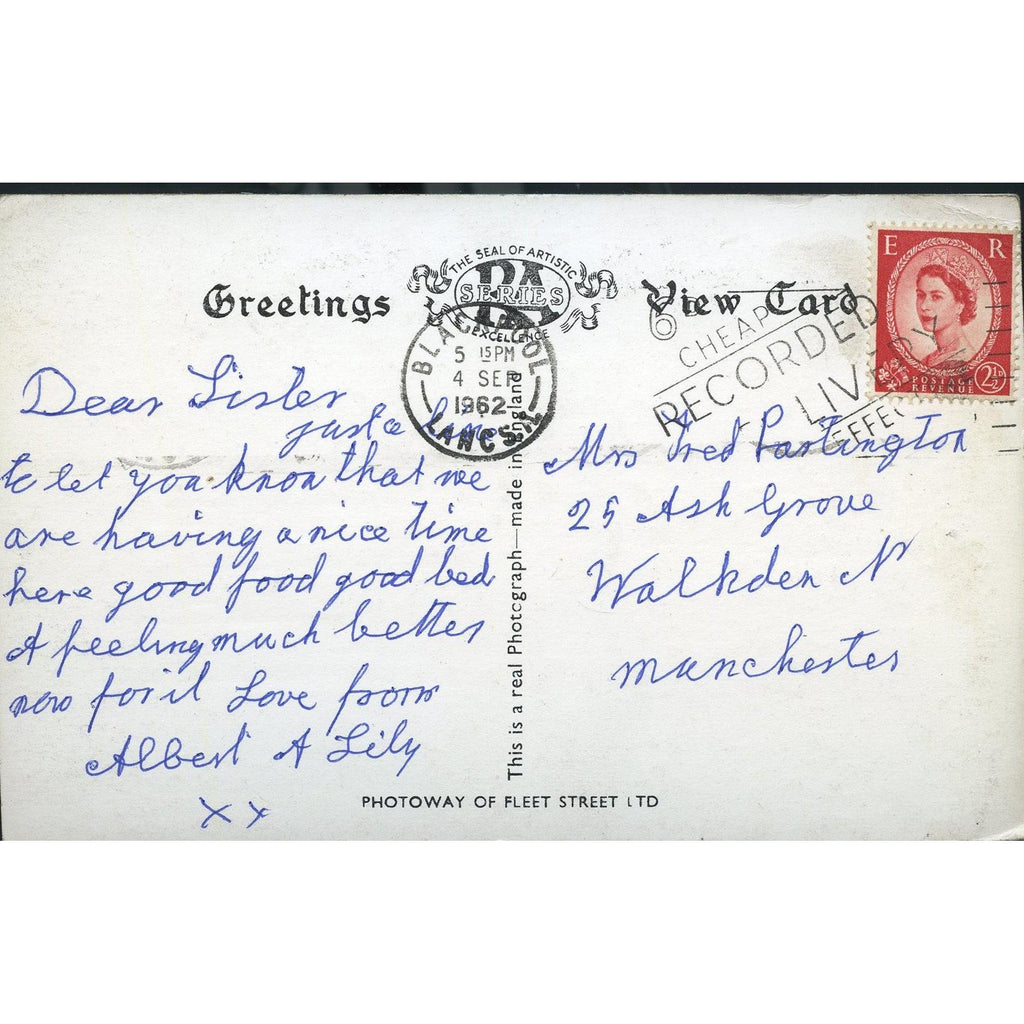 Greetings
THE SEAL OF ARTISTIC
RA
SERIES
EXCELLENCE
View Card
E R
POSTAGE
REVENUE
2½D
BLACKPOOL
5 15PM
4 SEP
1962
LANCS.
6D
CHEAP
RECORDED
LIVERY
EFFEC
Dear Sister
just a line
to let you know that we
are having a nice time
here good food good bed
A feeling much better
now for it Love from
Albert A Lily
XX
This is a real Photograph—made in England
Mrs Fred Partington
25 Ash Grove
Walkden Nr
Manchester
PHOTOWAY OF FLEET STREET LTD